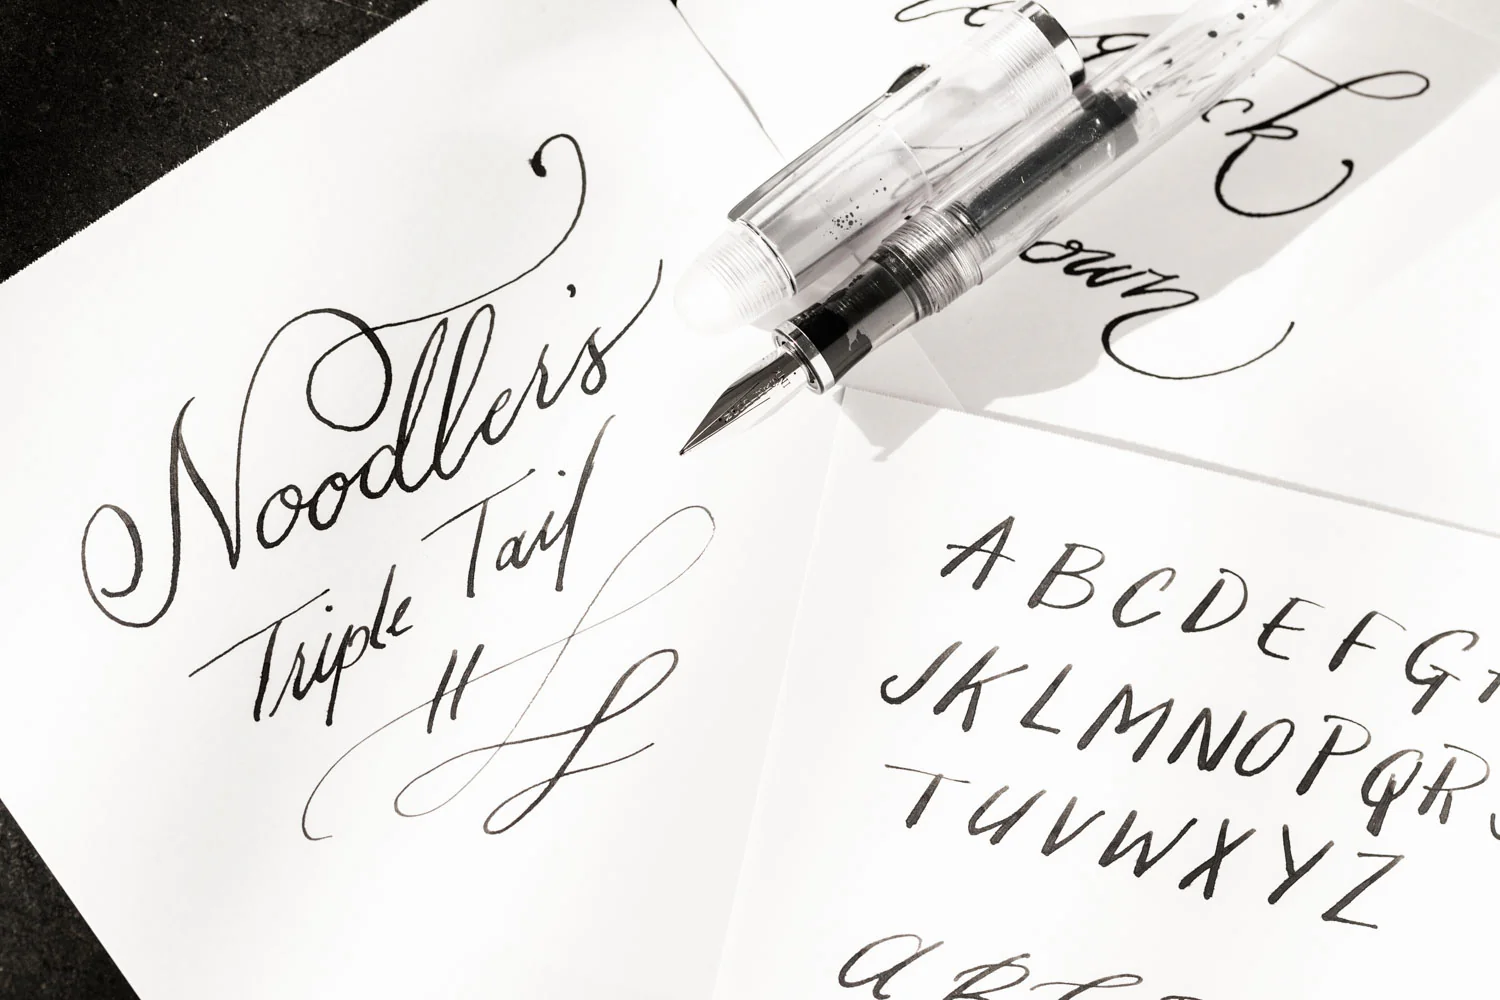 Noodler's
Triple Tail
own
A B C D E F G
J K L M N O P Q R
T U V W X Y Z